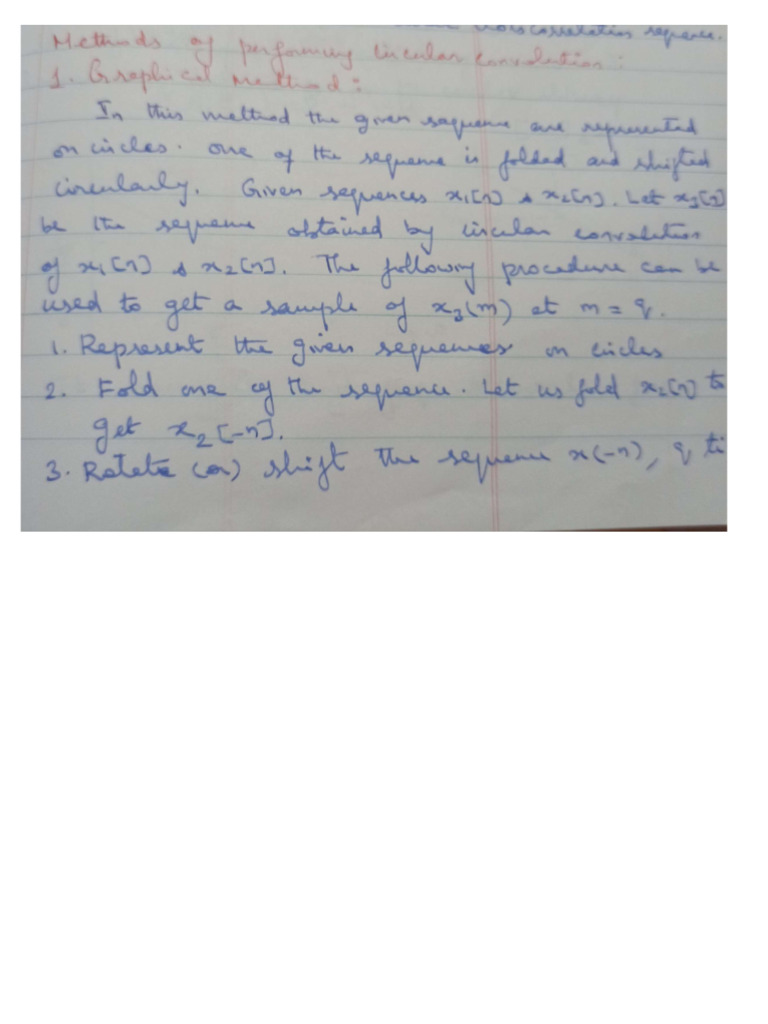 crosscorrelation sequence.
Methods of performing circular convolution:
1. Graphical Method:
In this method the given sequence are represented
on circles. One of the sequence is folded and shifted
circularly. Given sequences x1[n] & x2[n]. Let x3[n]
be the sequence obtained by circular convolution
of x1[n] & x2[n]. The following procedure can be
used to get a sample of x3(m) at m = q.
1. Represent the given sequences on circles
2. Fold one of the sequence. Let us fold x2[n] to
get x2[-n].
3. Rotate (or) shift the sequence x(-n), q ti